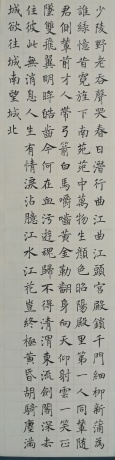 少陵野老吞聲哭春日潛行曲江曲江頭宮殿鎖千門細柳新蒲為
誰綠憶昔霓旌下南苑苑中萬物生顏色昭陽殿里第一人同輦隨
君側輦前才人帶弓箭白馬嚼齧黃金勒翻身向天仰射雲一笑正
墜雙飛翼明眸皓齒今何在血污遊魂歸不得清渭東流劍閣深去
住彼此無消息人生有情淚沾臆江水江花豈終極黃昏胡騎塵滿
城欲往城南望城北